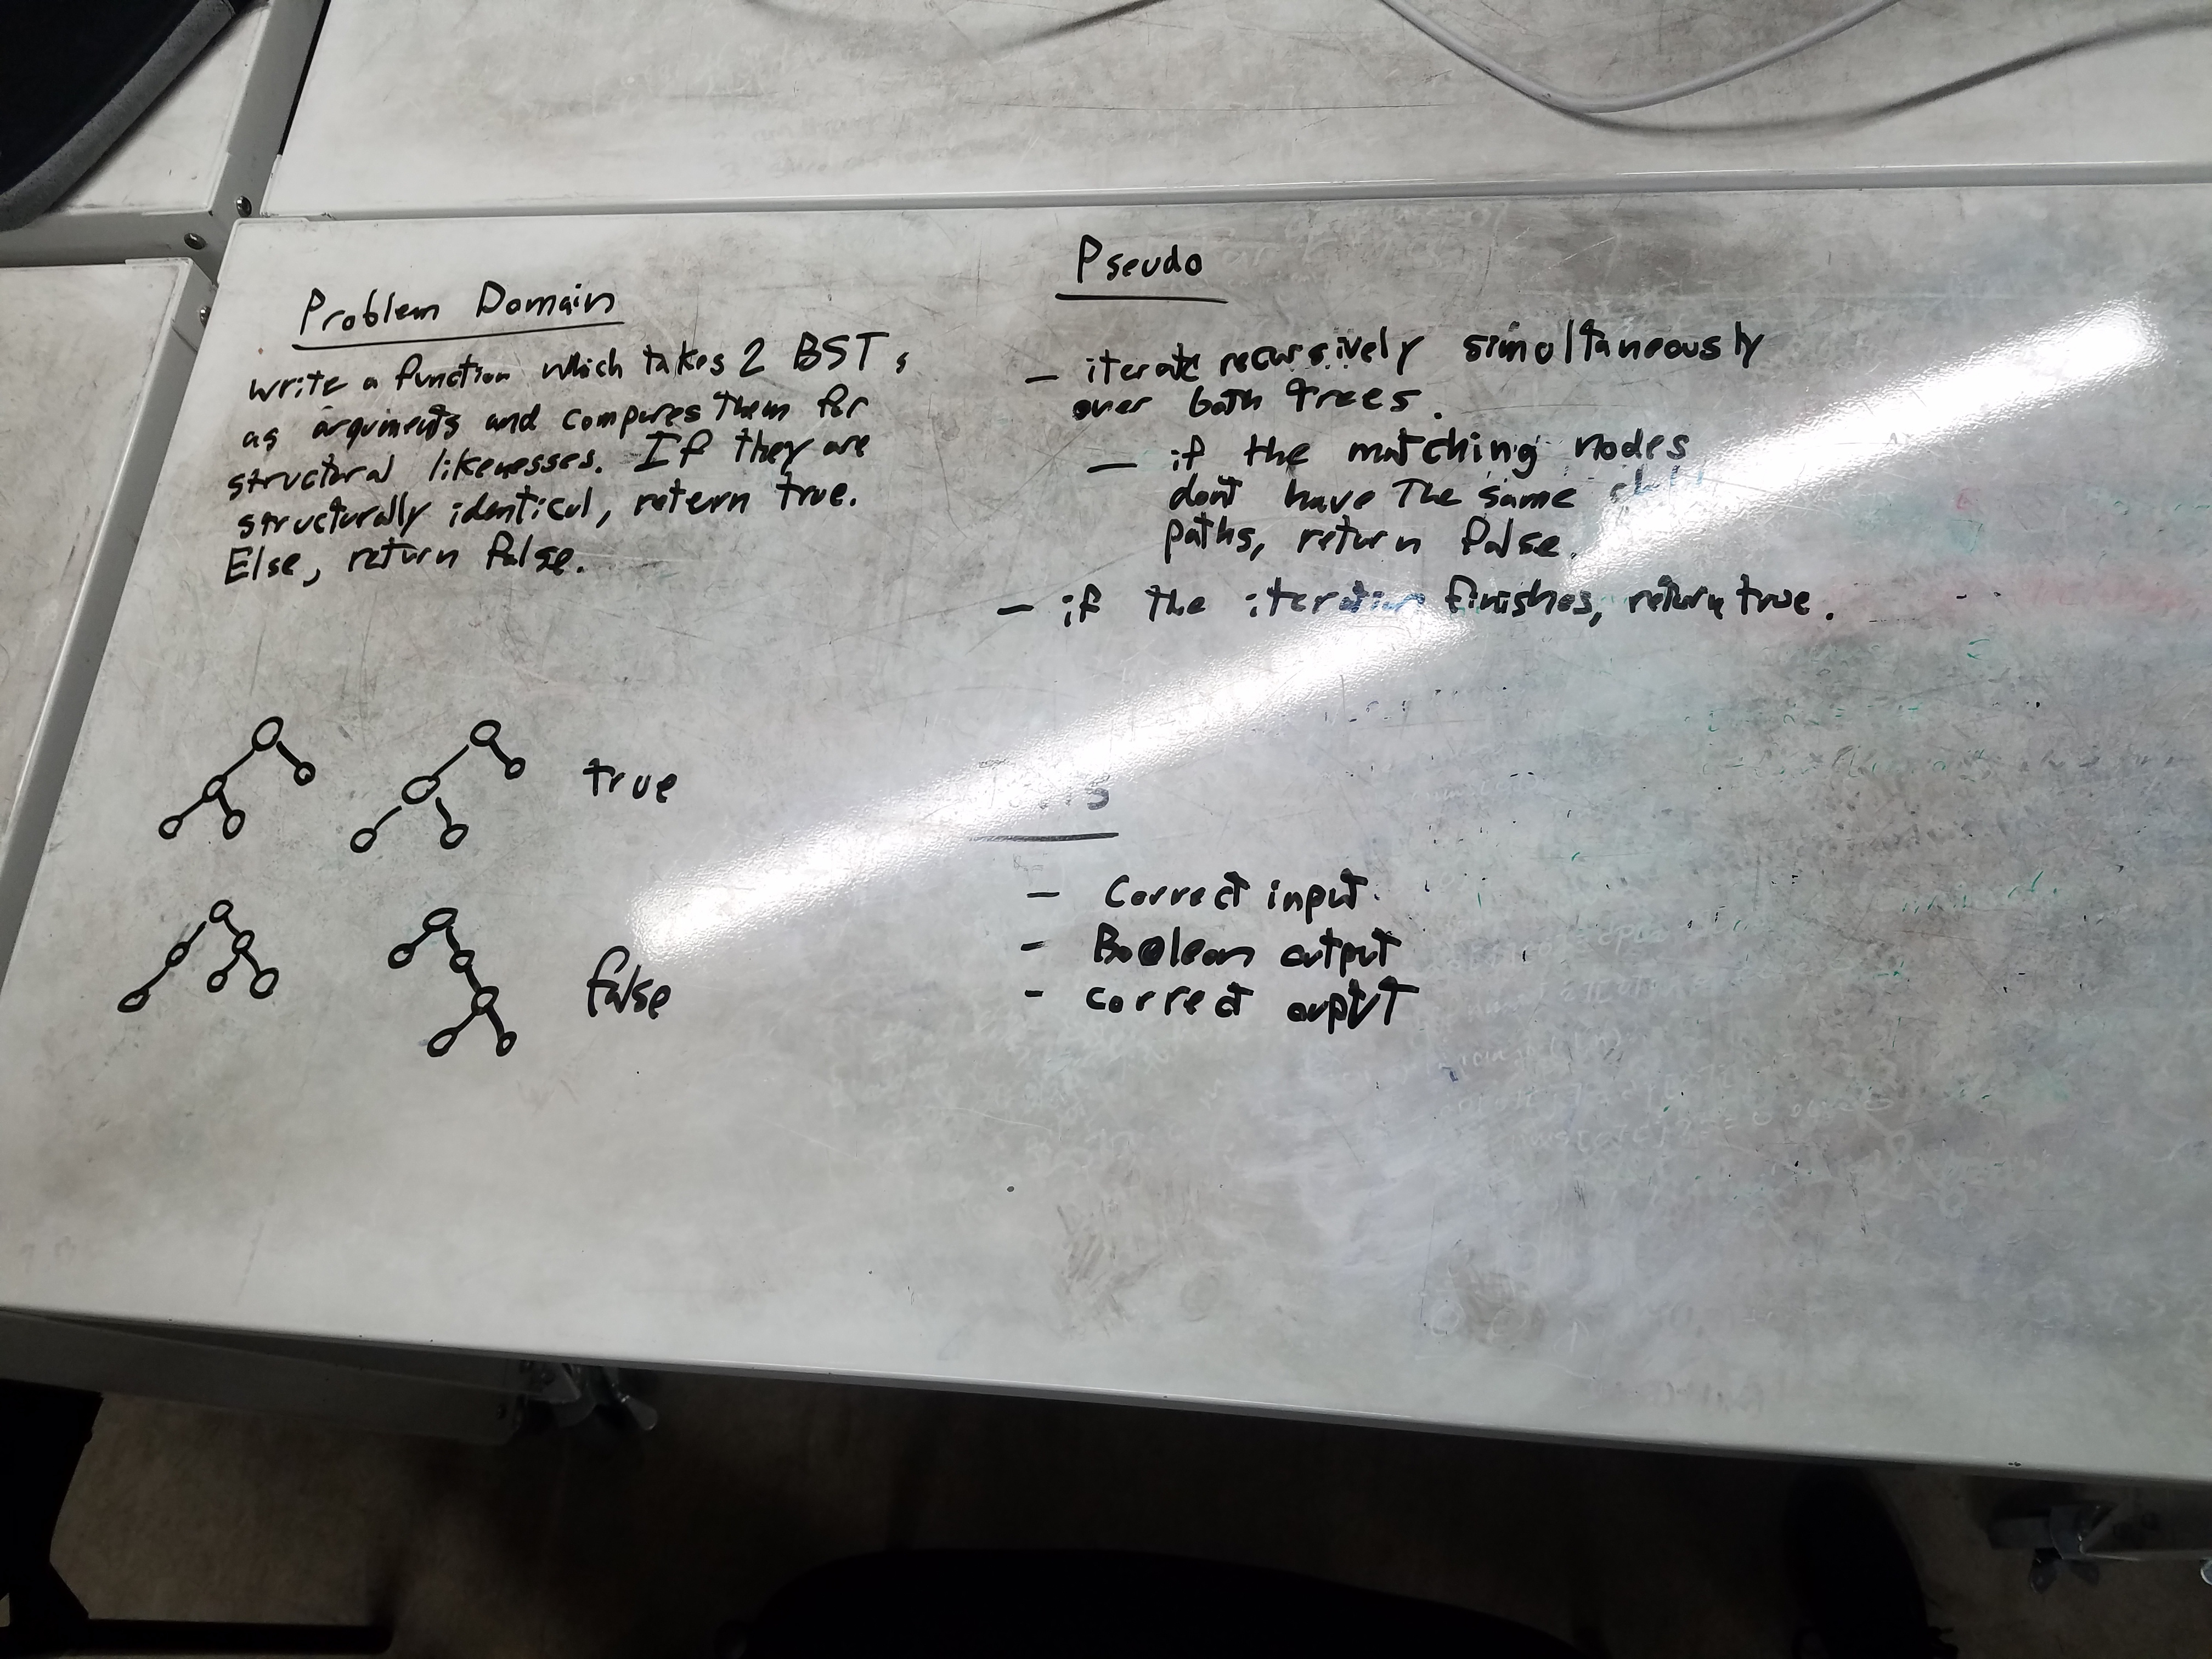 Problem Domain
write a function which takes 2 BSTs
as arguments and compares them for
structural likenesses. If they are
structurally identical, return true.
Else, return false.
true
false
Pseudo
- iterate recursively simoltaneously
over both trees.
- if the matching nodes
dont have the same
paths, return false.
- if the iteration finishes, return true.
- Correct input.
- Boolean output
- correct ouptut